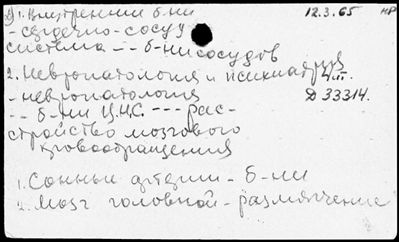 1. Внутренние б-ни 12.3.65
- сердечно-сосуд
система -- б-ни сосудов
2. Невропатология и психиатрия
- невропатология Д 33314.
-- б-ни Ц.Н.С. --- рас-
стройство мозгового
кровообращения
1. Сонные артерии - б-ни
2. Мозг головной - размягчение